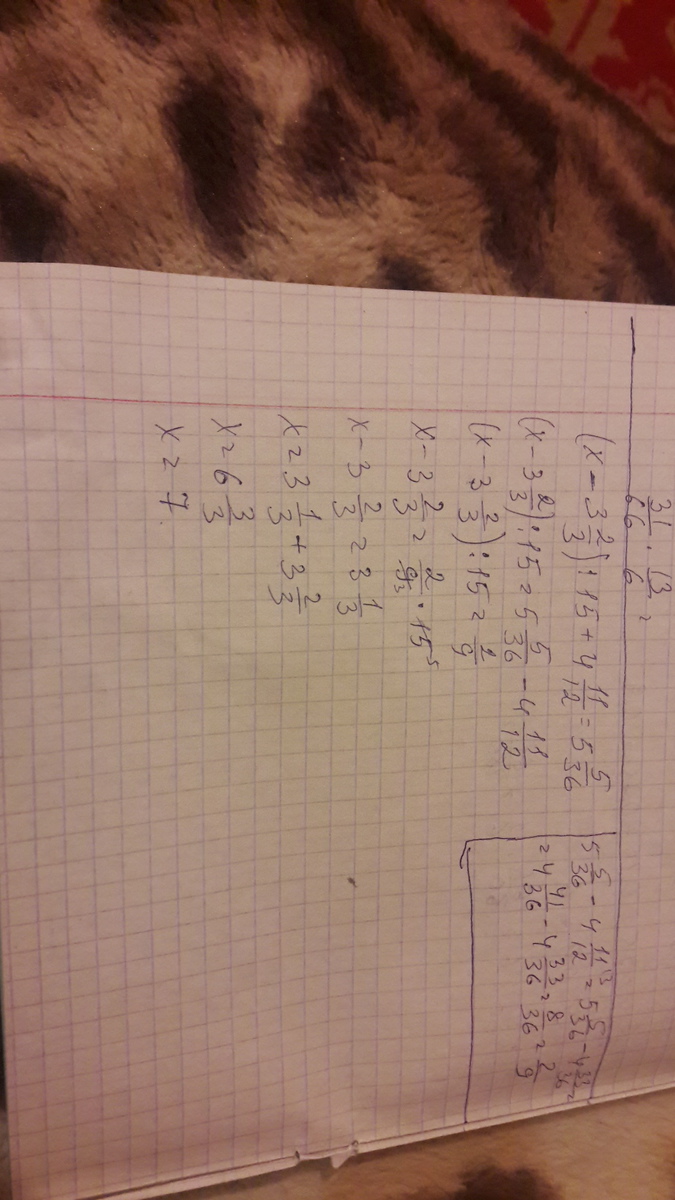 31/66 · 13/6 =
(x - 3 2/3) : 15 + 4 11/12 = 5 5/36
(x - 3 2/3) : 15 = 5 5/36 - 4 11/12
(x - 3 2/3) : 15 = 2/9
x - 3 2/3 = 2/9 3 · 15 5
x - 3 2/3 = 3 1/3
x = 3 1/3 + 3 2/3
x = 6 3/3
x = 7.
5 5/36 - 4 11/12 3 = 5 5/36 - 4 33/36 =
= 4 41/36 - 4 33/36 = 8/36 = 2/9